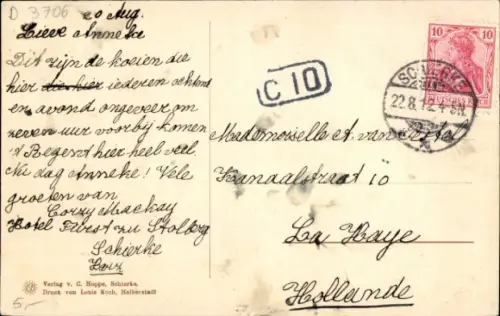 D 3706
20 Aug.
Lieve Anneke
Dit zijn de koeien die
hier iederen ochtend
en avond ongeveer om
zeven uur voorbij komen
't Regent hier heel veel
Nu dag Anneke! Vele
groeten van
Corry Mackay
Hotel Fürst zu Stolberg
Schierke
Harz
5,-
Verlag v. C. Hoppe, Schierke.
Druck von Louis Koch, Halberstadt
C 10
10 10
SCHIERKE
22.8.12.
Mademoiselle A. van
Kanaalstraat 10
La Haye
Hollande